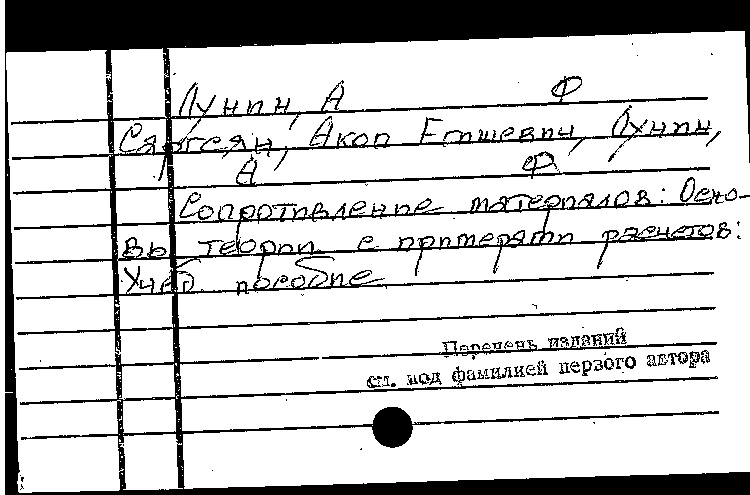 Лунин, А Ф
Саргсян, Акоп Егишевич, Лунин,
А Ф
Сопротивление материалов: Осно-
вы теории с примерами расчетов:
Учеб. пособие
Перечень изданий
см. под фамилией первого автора